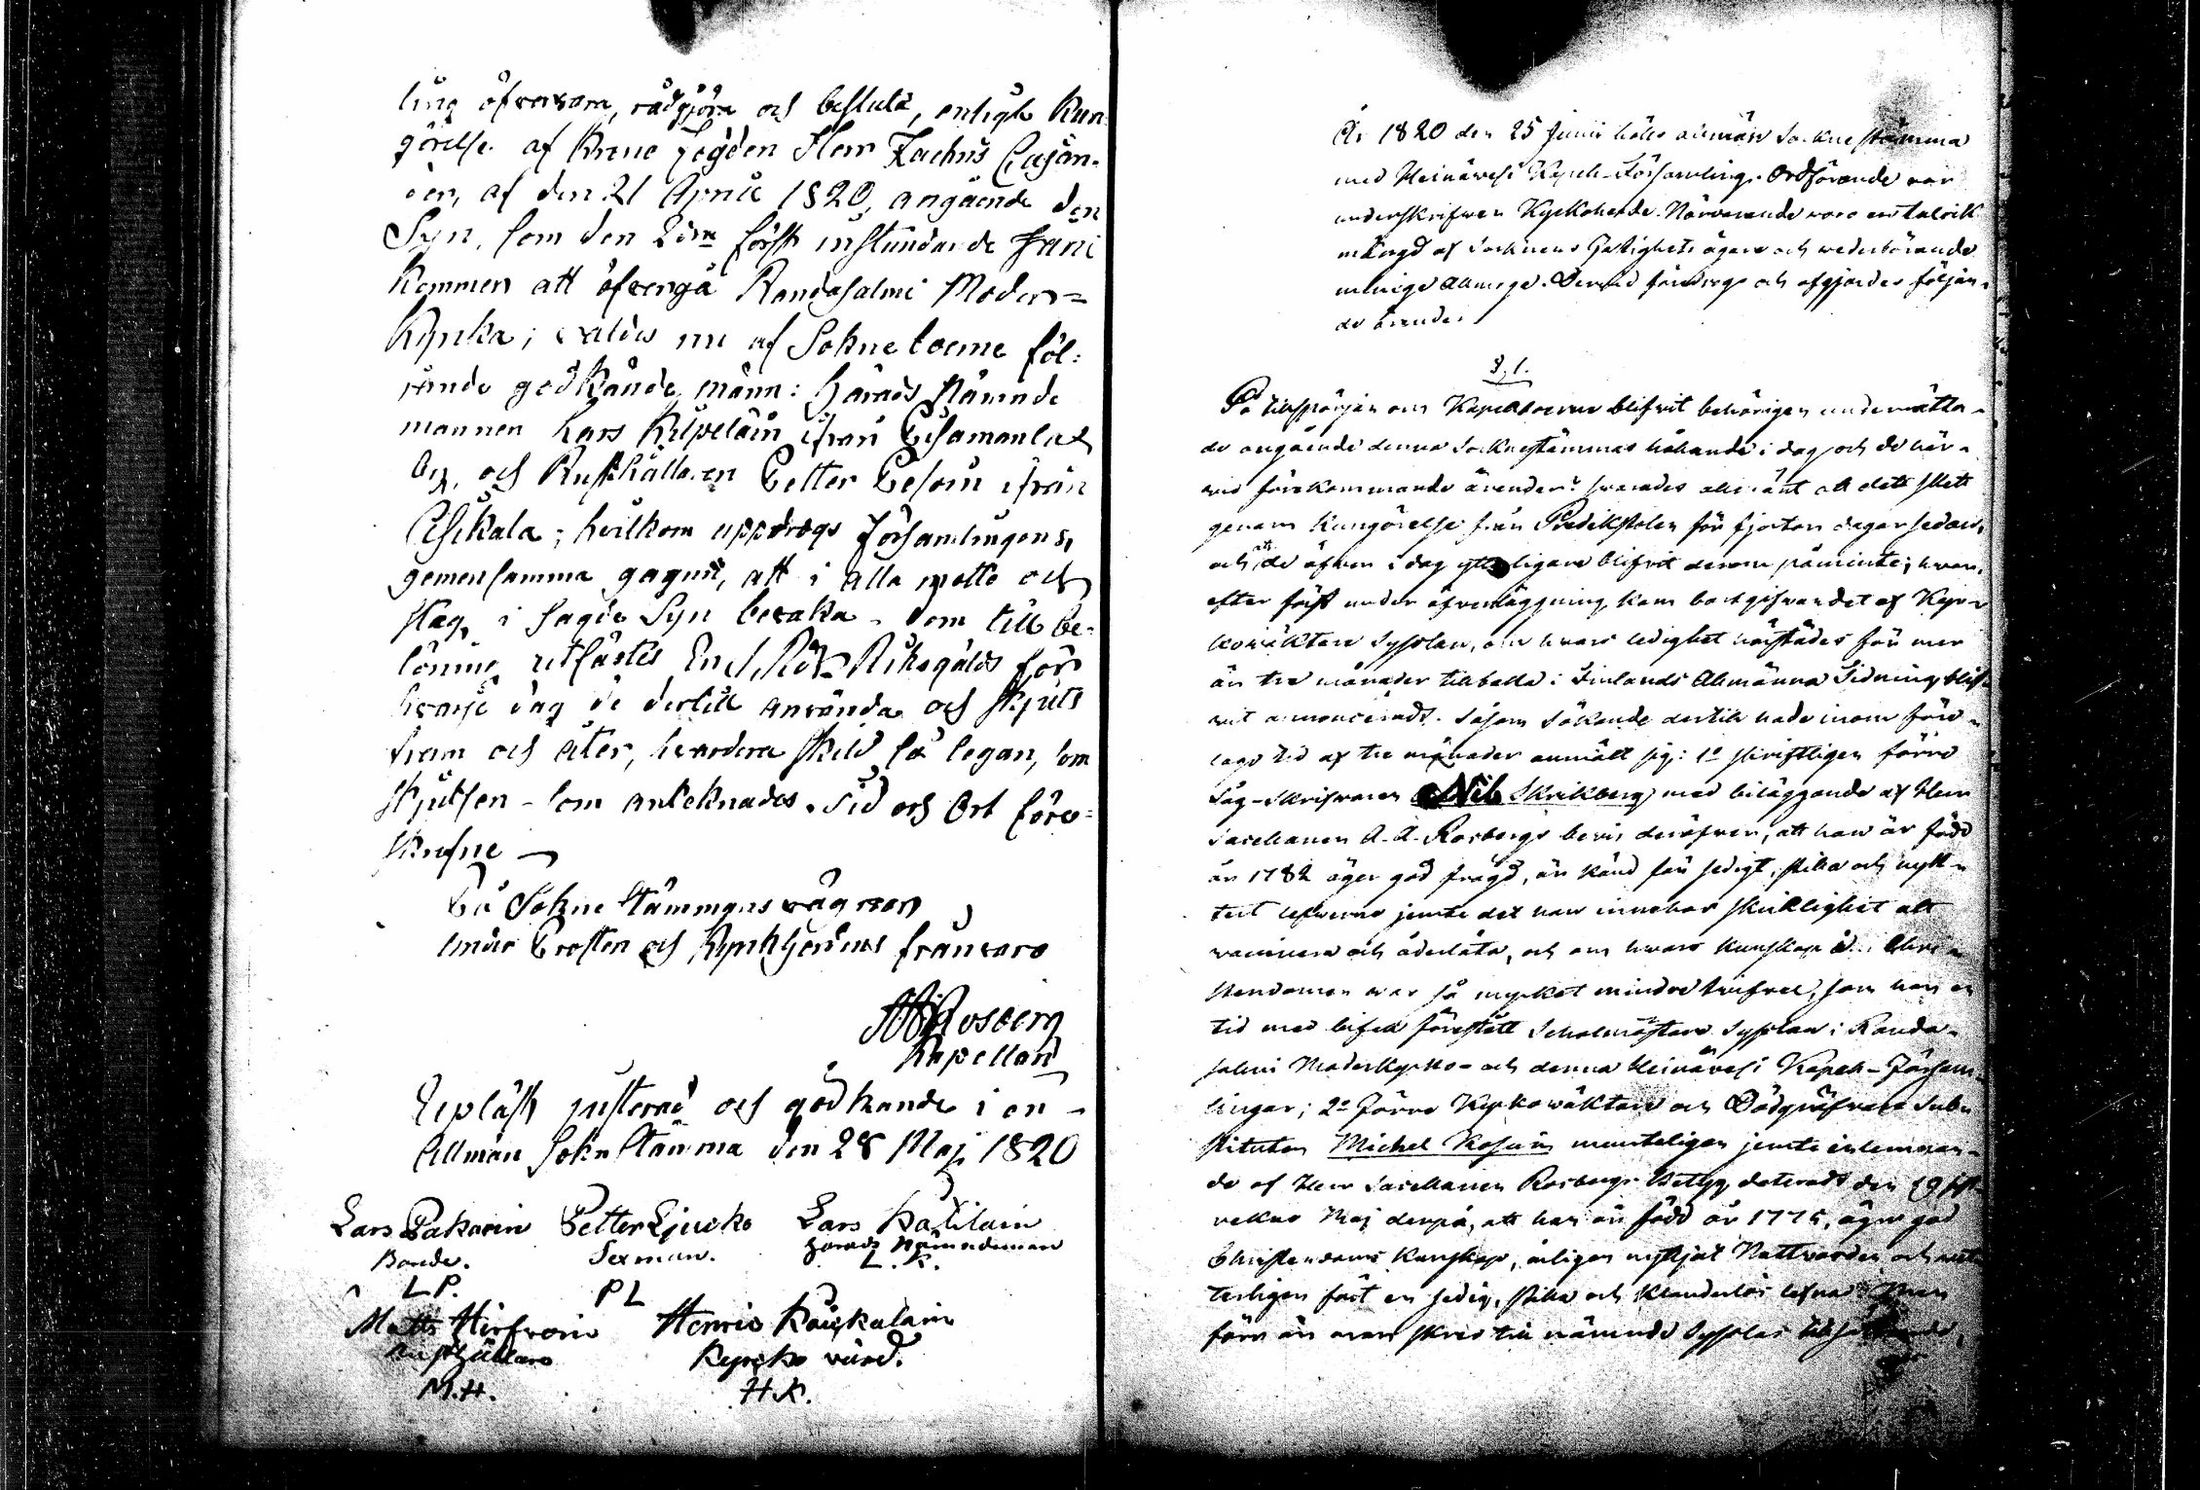 ling öfvervara, rådgöra och besluta, enligt Kun
görelse af Krono Fogden Herr Zachris Cajan-
der, af den 21 Aprill 1820, angående den
Syn, som den 2dra först instundande Juni
kommer att öfvergå Randasalmi Moder=
Kyrka; valdes nu af Sokneboerne föl:
jande godkände männ: Härads Nämnde
mannen Lars Kilpeläin ifrån
by, och Rusthållaren Petter Pesoin ifrån
hvilkom uppdrogs Församlingens,
gemensamma gagn, att i alla motto och
slag, i sagde Syn bevaka. Dem till be-
löning utfästes En Rdr Riksgälds för
hvarje dag de dertill använda och skjuts
fram och åter, hvardera skild så legan, som
skjutsen - som anteknades. Tid och Ort före=
skrifne
På Sokne Stämmans vägnar
under Prosten och Kyrkherdens frånvaro
Rosberg
Kapellan
Upläst justerad och godkände i en
Allmän Sokn Stämma den 28 Maj 1820
Lars Pakarin Petter Ljucko Lars
Bonde. Sexman. Härads Nämndeman
L P. P L L. K.
Matts Hirfvoin Henric Kaiskalain
Rusthållare Kyrcko värd.
M.H. H.K.
År 1820 den 25 Junii hölts allmän Sockne stämma
med Heinävesi Kapell-Församling. Ordförande var
underskrifven Kyrkoherde. Närvarande voro en talrik
mängd af Socknens Fastighets ägare och vederbörande
menige Allmoge. Dervid föredrogs och afgjordes följan-
de ärender
§. 1.
På tillspörjan om Kapellboerne blifvit behörigen underrätta-
de angående denna Socknestämmas hållande i dag och de här-
vid förekommande ärender? svarades allmänt att dett skett
genom Kungörelse från Predikstolen för fjorton dagar sedan,
och att de äfven i dag ytterligare blifvit derom påminte; hvar-
efter först under öfverläggning kom bortgifvandet af Kyr-
kowäktare Sysslan, om hvars ledighet härstädes för mer
än tre månader tillbaka i Finlands Allmänna Tidning blif-
vit annonceradt. Såsom Sökande dertill hade inom före-
lagd tid af tre månader anmält sig: 1o skriftligen förre
Såg-Skrifvaren Nils Skrikberg med biläggande af Herr
Sacellanen A. A. Rosbergs bevis deröfver, att han är född
år 1782 äger god frägd, är känd för sedigt, stilla och nykt-
ert lefverne jemte det han innehar skicklighet att
vaccinera och åderlåta, och om hvars kunskap i Chri-
stendomen var så mycket mindre tvifvel, som han en
tid med bifall förestått Scholmästare Sysslan i Randa-
salmi Moderkyrko- och denna Heinävesi Kapell-Försam-
lingar; 2o Förre Kyrkowäktare och Dödgräfvare Sub-
stituten Michel Kosoin munteligen jemte inlemnan-
de af Herr Sacellanen Rosbergs Betyg, dateradt den 19 sist-
vekne Maj derpå, att han är född år 1775, äger god
Christendoms kunskap, årligen nyttjat Nattvarden och
terligen fört en sedig, stilla och klanderlös lefnad. Men
förr än man skred till nämnde Sysslas